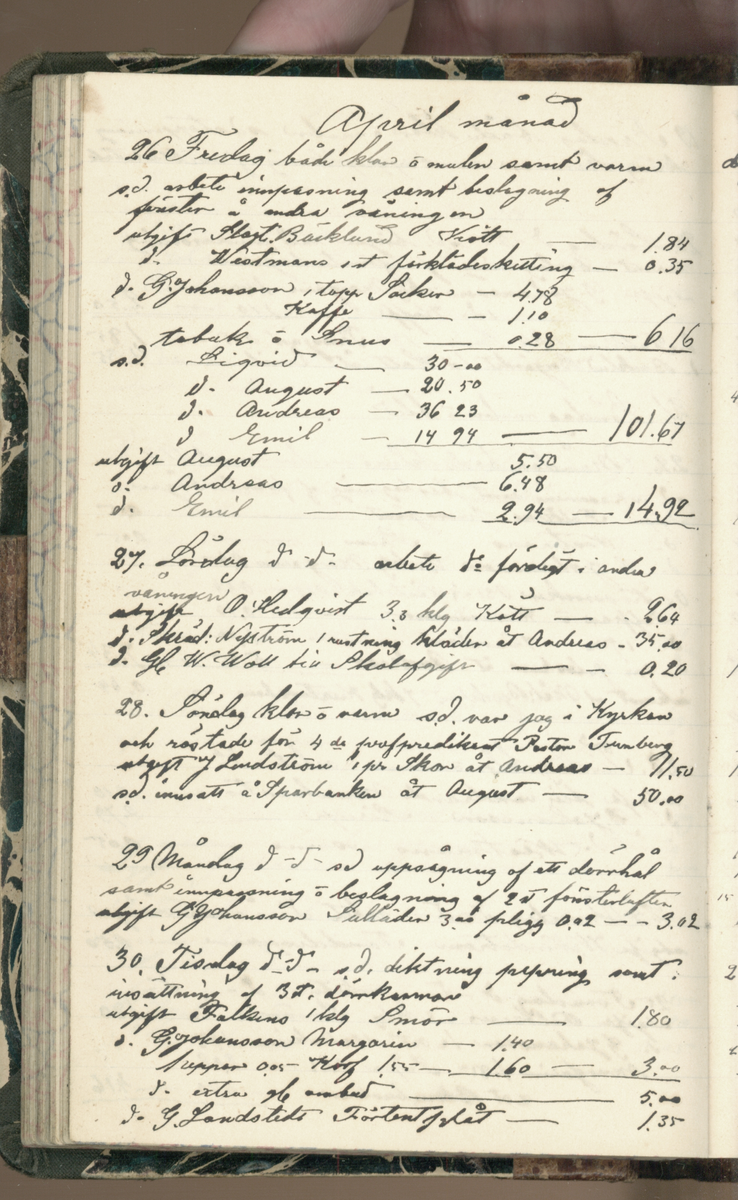 April månad
26 Fredag både klar o mulen samt varm
s.d. arbete innpasning samt beslagning af
fönster å andra våningen
utgift Slagt. Bäcklund Kött — 1.84
d. Westmans 1 st förklädeskitting — 0.35
d. G. Johansson 1 topp Socker — 4.78
Kaffe — 1.10
tobak o Snus — 0.28 — 6 16
s.d. Liqvid — 30-00
d. August — 20.50
d. Andreas — 36 23
d Emil — 14 94 — 101.67
utgift August 5.50
d. Andreas — 6.48
d. Emil — 2.94 — 14,92
27. Lördag d - d - arbete d: färdigt i andra
våningen
utgift O. Hedqvist 3.3 klg Kött — . 264
d. Skräd: Nyström 1 rustning kläder åt Andreas - 35.00
d. W. Skolafgift — — 0.20
28. Söndag klar o varm s.d. var jag i Kyrkan
och röstade för 4 de profpredikant Pastor Tunberg
utgift J Lundström 1 pr Skor åt Andreas — 11.50
s.d. innsatt å Sparbanken åt August — 50.00
29 Måndag d - d - sd uppsågning af ett dörrhål
samt innpassning o beslagning af 2 st fönsterlufter
utgift G Johansson 3.00 pligg 0.02 — - 3.02
30. Tisdag d - d - s.d. diktning samt
insättning af 3 st. dörrkarmar
utgift Falkens 1 klg Smör — 1.80
d. G. Johansson Margarin — 1.40
1 0.05 Korf 1.55 — 1.60 — 3.00
d. extra — 5.00
d. G. Landstedts Förtent plåt — 1.35